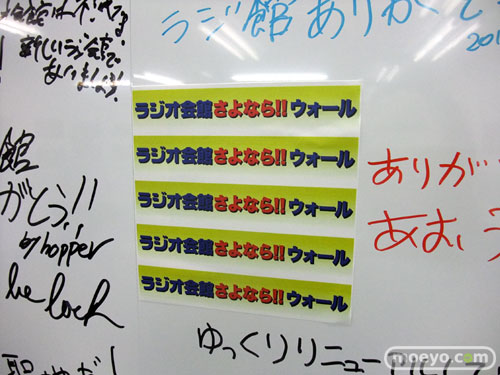 ラジ館ありがと
201
新しいラジ館で
あいましょう!
ラジオ会館さよなら!!ウォール
ラジオ会館さよなら!!ウォール
ラジオ会館さよなら!!ウォール
ラジオ会館さよなら!!ウォール
ラジオ会館さよなら!!ウォール
館
がとう!!
by hopper
ありが
ゆっくりリニュー
moeyo.com